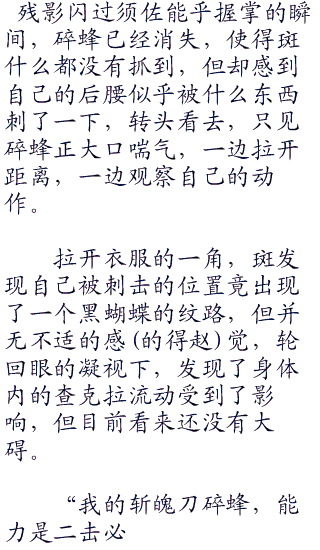 残影闪过须佐能乎握掌的瞬
间，碎蜂已经消失，使得斑
什么都没有抓到，但却感到
自己的后腰似乎被什么东西
刺了一下，转头看去，只见
碎蜂正大口喘气，一边拉开
距离，一边观察自己的动
作。
拉开衣服的一角，斑发
现自己被刺击的位置竟出现
了一个黑蝴蝶的纹路，但并
无不适的感(的得赵)觉，轮
回眼的凝视下，发现了身体
内的查克拉流动受到了影
响，但目前看来还没有大
碍。
“我的斩魄刀碎蜂，能
力是二击必